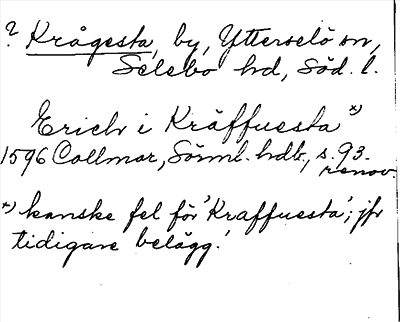 ? Krågesta, by, Ytterselö sn,
Selebo hd, Söd. l.
Erich i Kräffuesta x)
1596 Collmar, Sörml. hdl., s. 93.
renov.
x) kanske fel för 'Kraffuesta'; jfr
tidigare belägg!